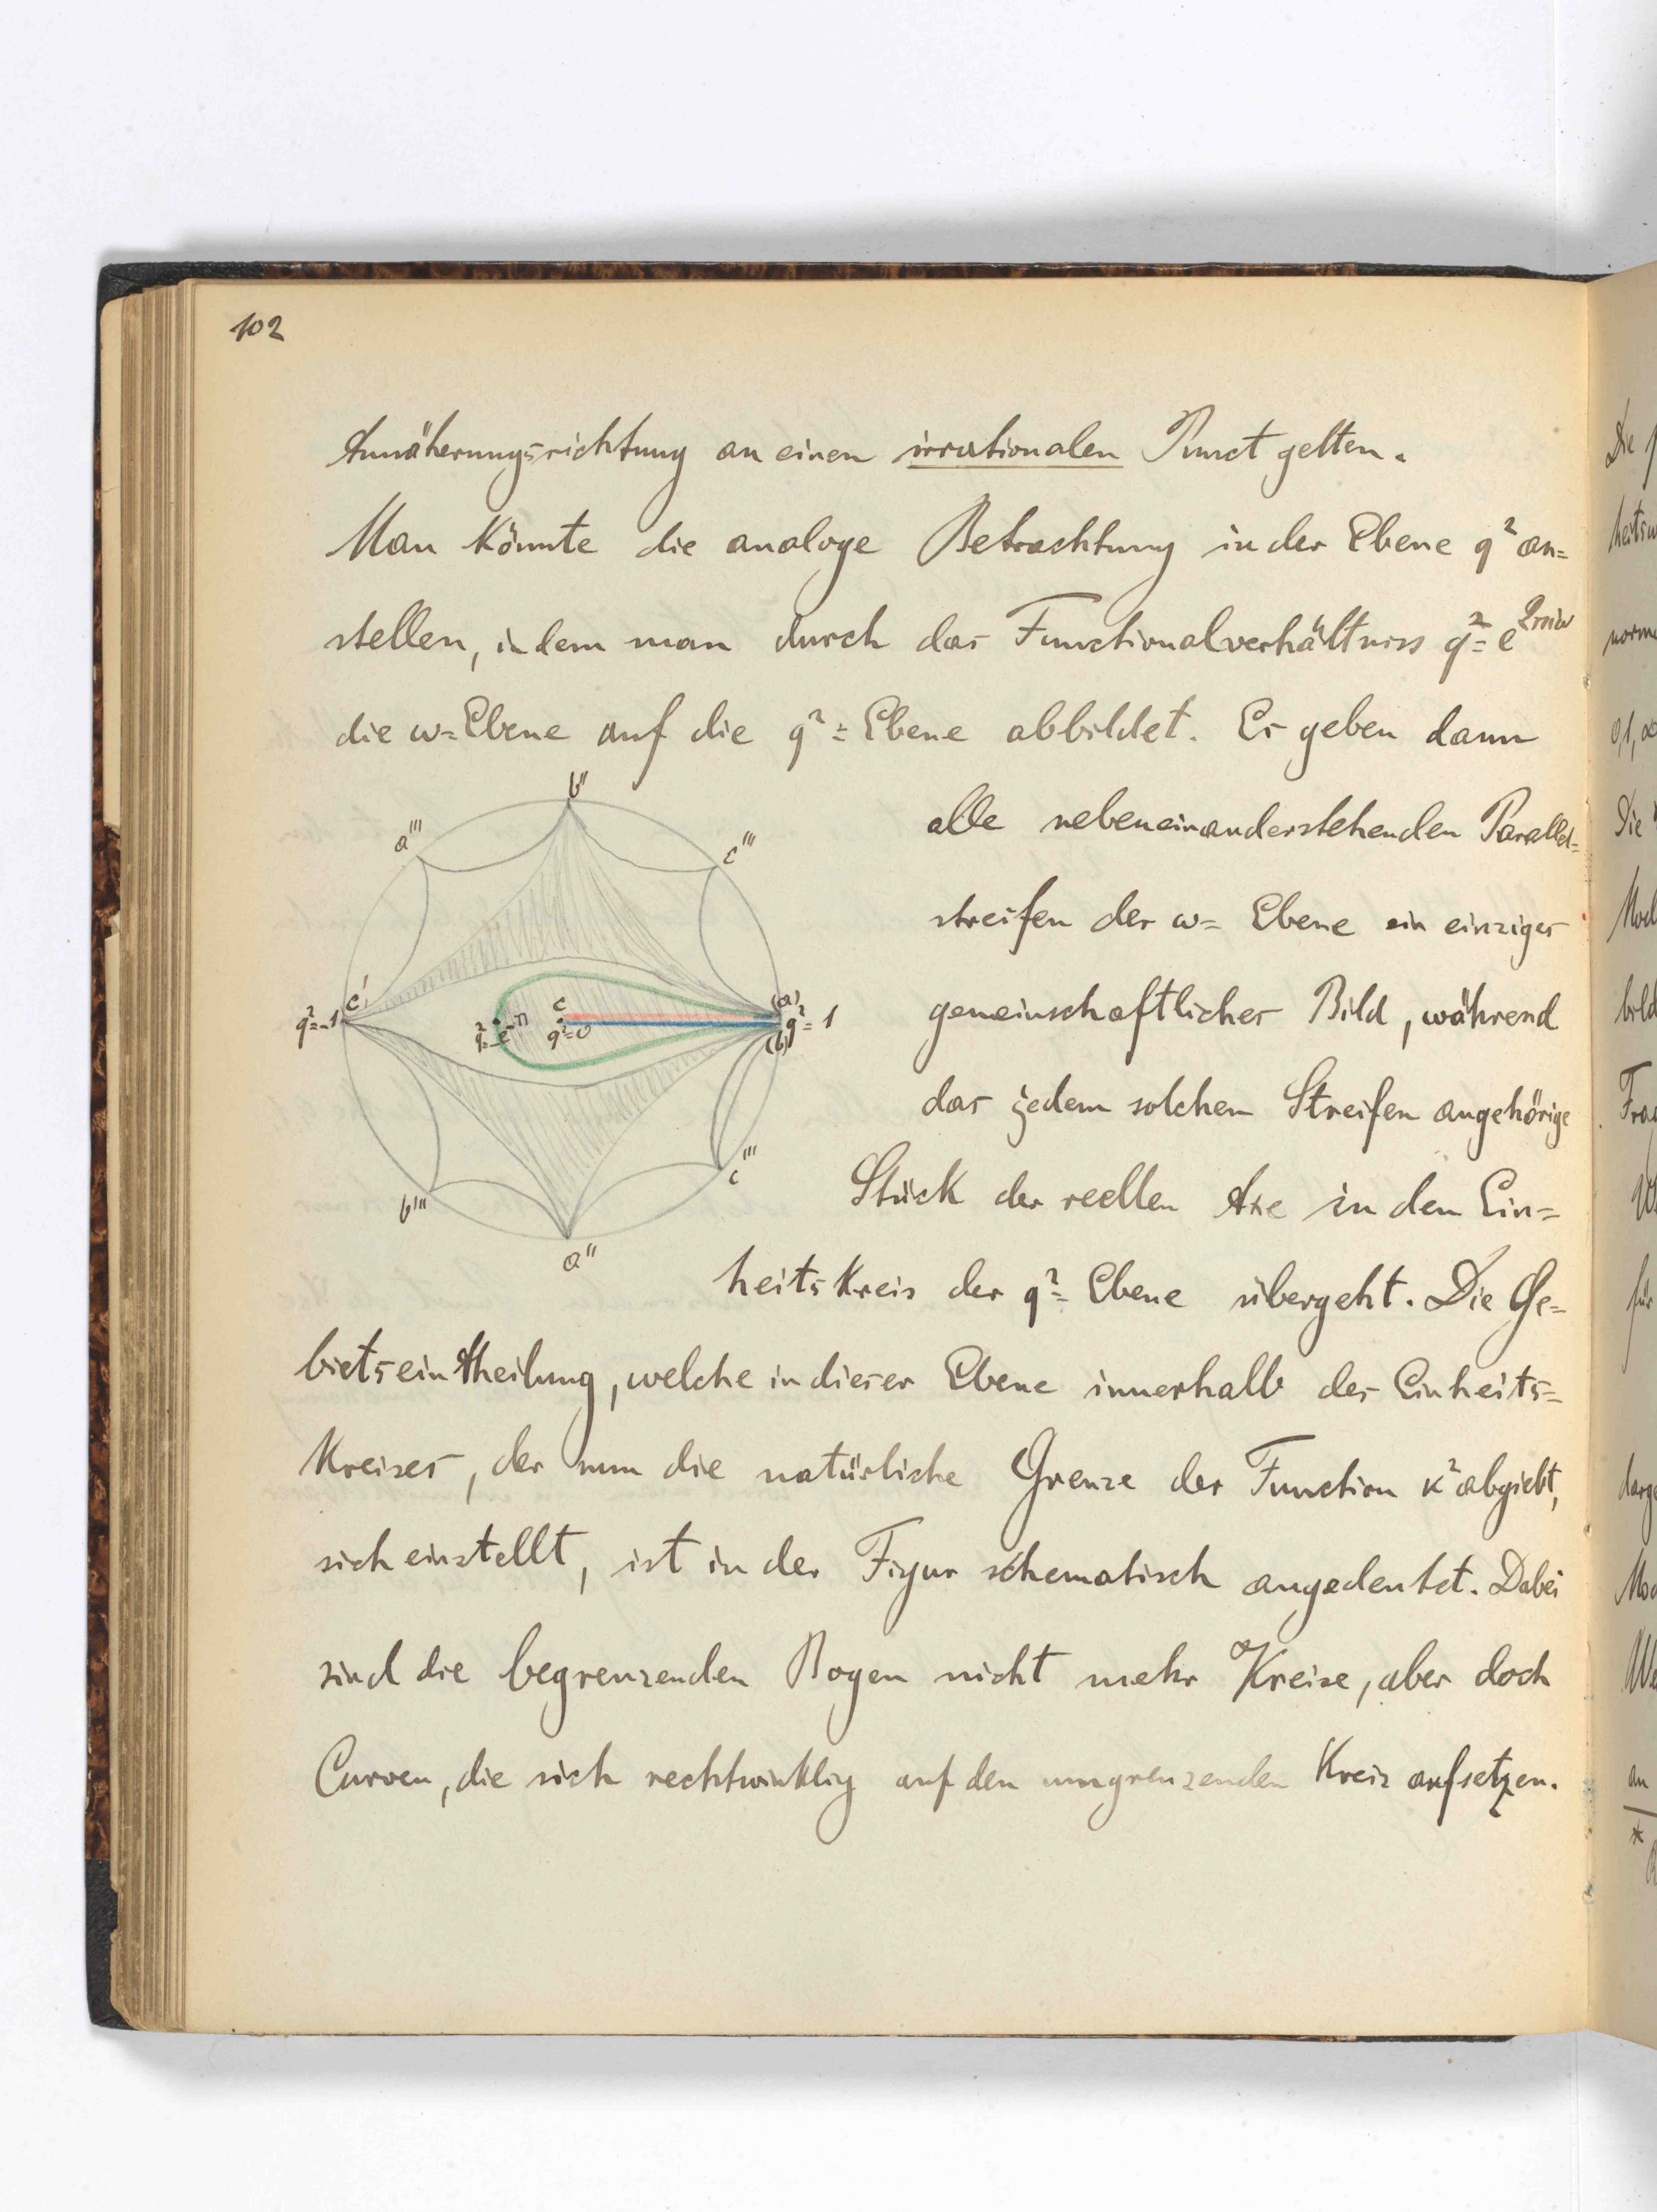 102
Annäherungsrichtung an einen irrationalen Punct gelten.
Man könnte die analoge Betrachtung in der Ebene q² an=
stellen, indem man durch das Functionalverhältniss q² = e^2πiω
die ω=Ebene auf die q²=Ebene abbildet. Es geben dann
alle nebeneinanderstehenden Parallel=
streifen der ω= Ebene ein einziges
gemeinschaftliches Bild, während
das jedem solchen Streifen angehörige
Stück der reellen Axe in den Ein=
heitskreis der q²= Ebene übergeht. Die Ge=
bietseintheilung, welche in dieser Ebene innerhalb des Einheits=
Kreises, der nun die natürliche Grenze der Function κ² abgiebt,
sich einstellt, ist in der Figur schematisch angedeutet. Dabei
sind die begrenzenden Bogen nicht mehr Kreise, aber doch
Curven, die sich rechtwinklig auf den umgrenzenden Kreis aufsetzen.
b''
a'''
c'''
c'
q²=-1
q²=-e^-π
c
q²=0
(a)
q²=1
(b)
c'''
b'''
a''
Die
0,1,∞
Die
für
an
*